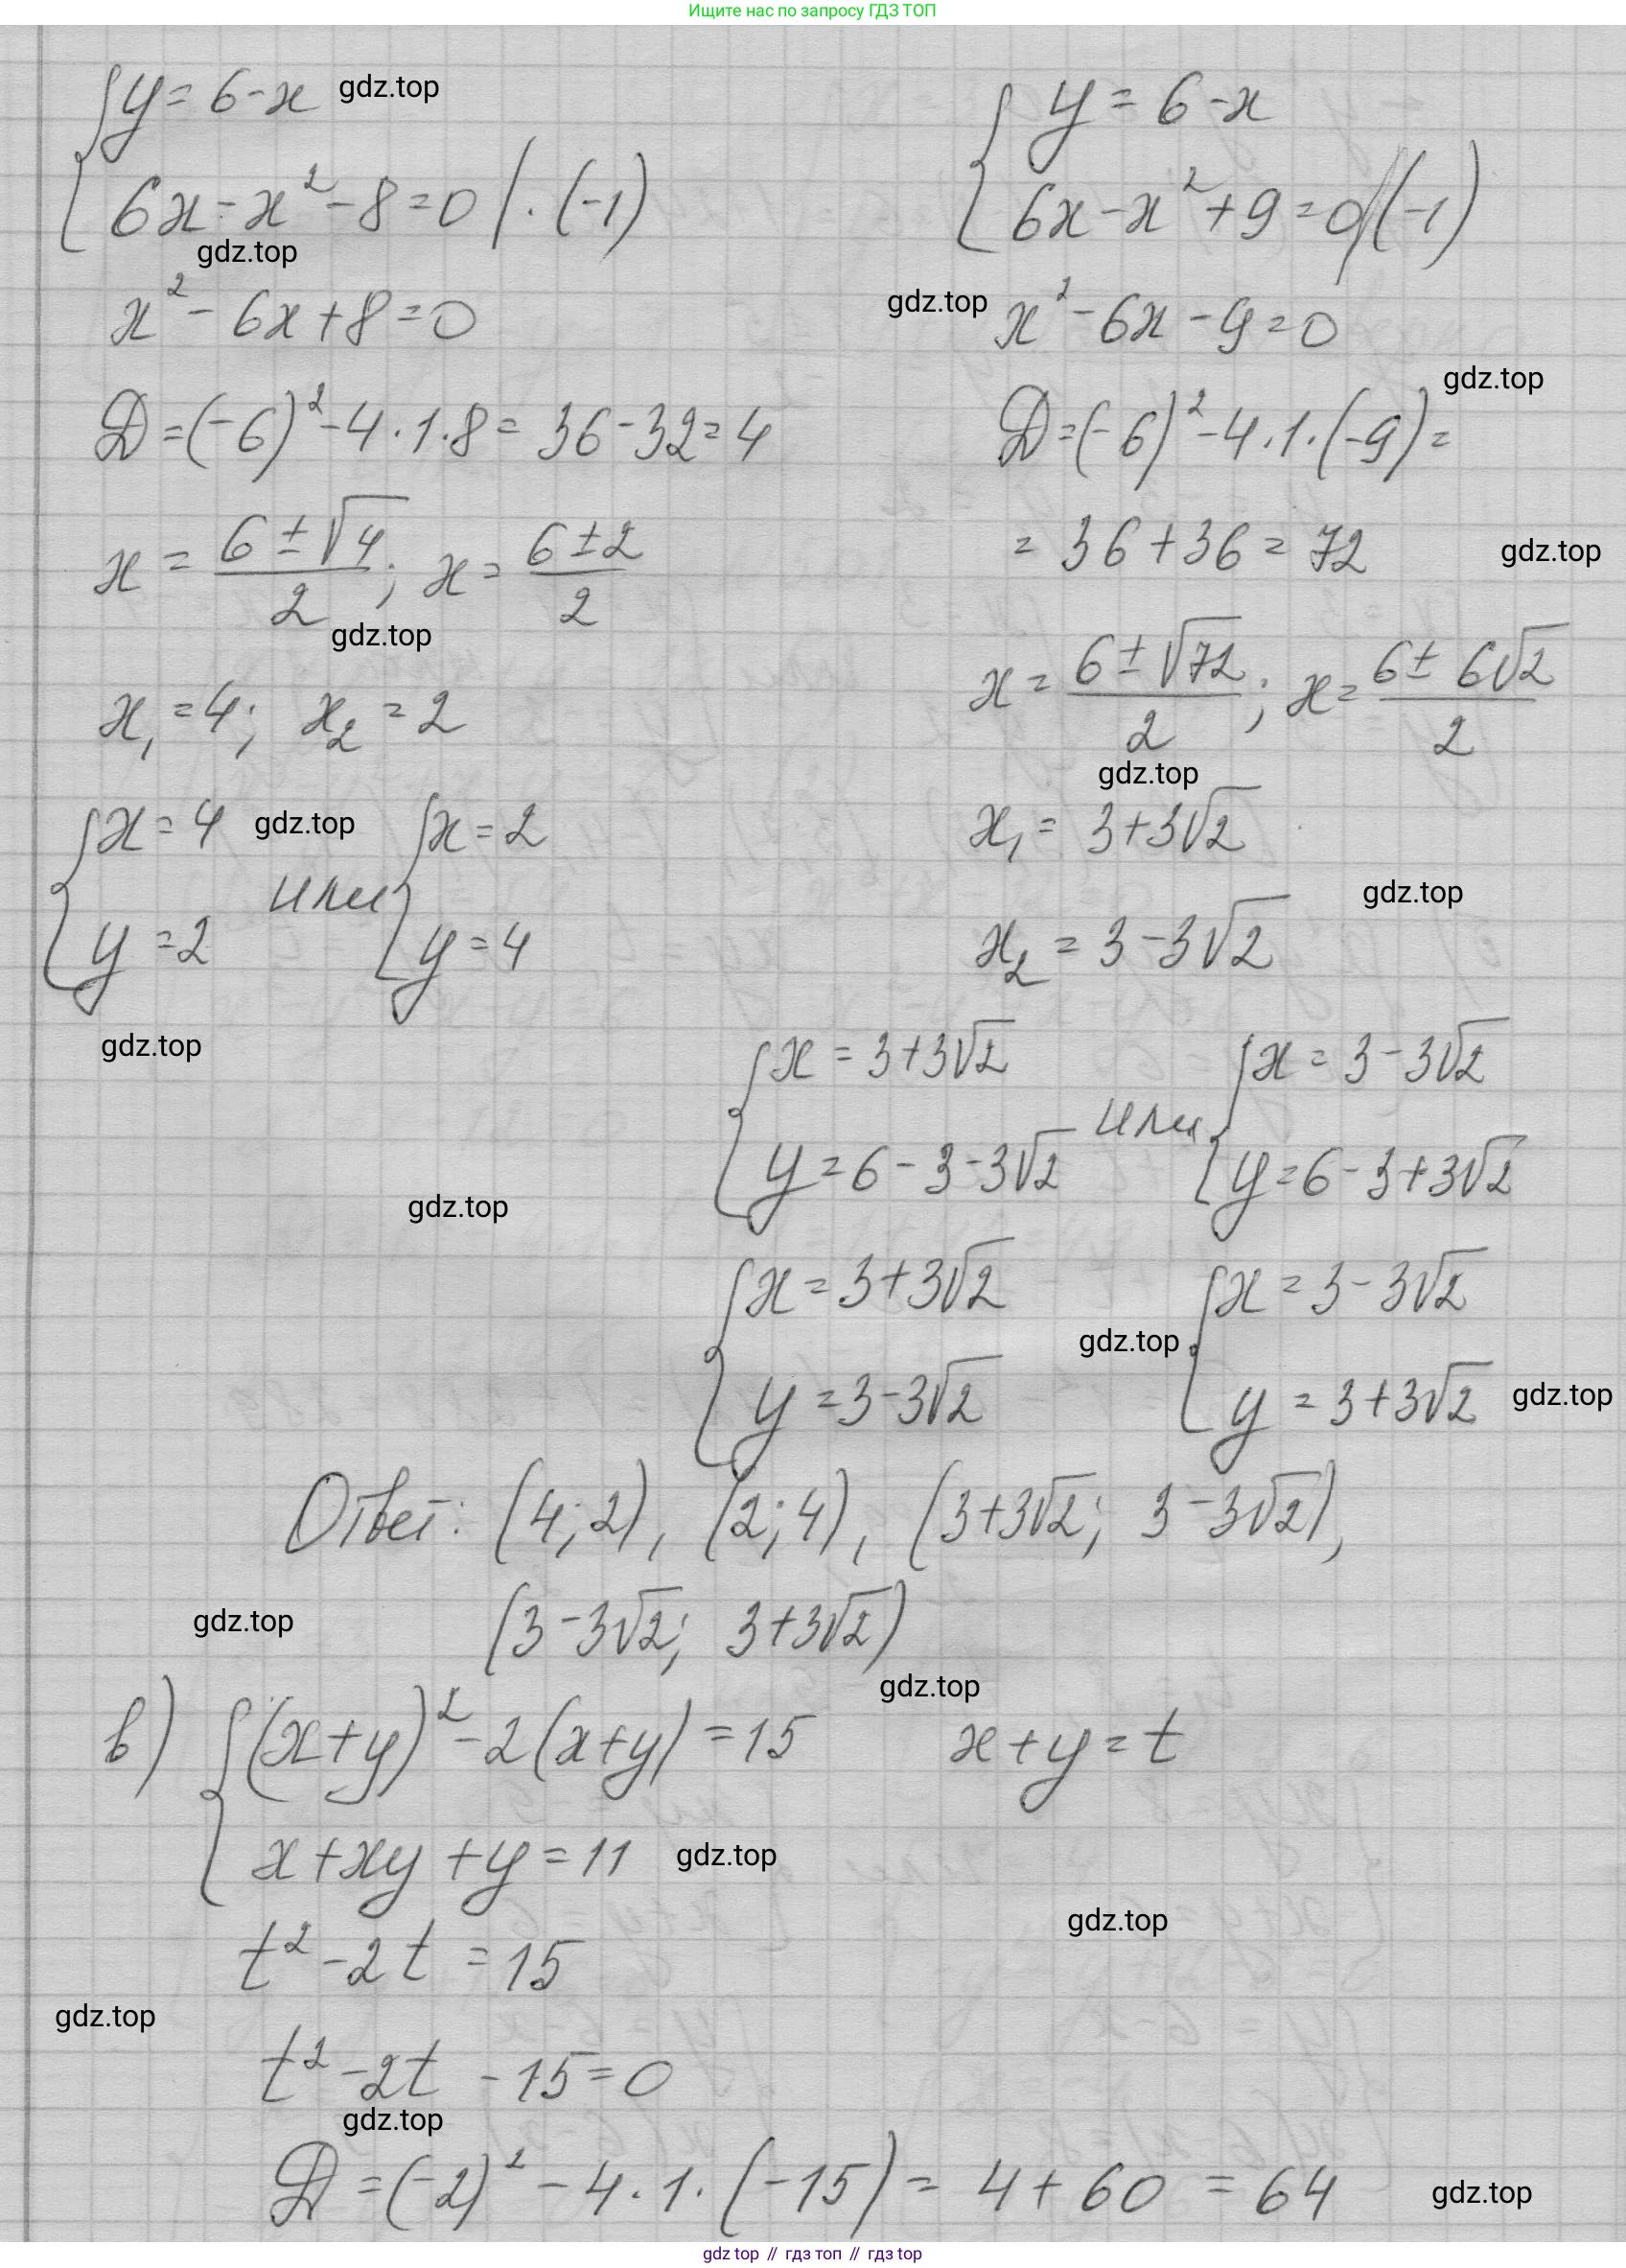 Ищите нас по запросу ГДЗ ТОП
{ y = 6 - x gdz.top
6x - x² - 8 = 0 | · (-1)
gdz.top
x² - 6x + 8 = 0
D = (-6)² - 4 · 1 · 8 = 36 - 32 = 4
x = (6 ± √4)/2 ; x = (6 ± 2)/2
gdz.top
x₁ = 4; x₂ = 2
{ x = 4 gdz.top { x = 2
или
y = 2 y = 4
gdz.top
{ y = 6 - x
6x - x² + 9 = 0 | (-1)
gdz.top x² - 6x - 9 = 0
gdz.top
D = (-6)² - 4 · 1 · (-9) =
= 36 + 36 = 72 gdz.top
x = (6 ± √72)/2 ; x = (6 ± 6√2)/2
gdz.top
x₁ = 3 + 3√2
gdz.top
x₂ = 3 - 3√2
{ x = 3 + 3√2 { x = 3 - 3√2
или
y = 6 - 3 - 3√2 y = 6 - 3 + 3√2
gdz.top
{ x = 3 + 3√2 { x = 3 - 3√2
gdz.top
y = 3 - 3√2 y = 3 + 3√2 gdz.top
Ответ: (4; 2), (2; 4), (3 + 3√2; 3 - 3√2),
gdz.top (3 - 3√2; 3 + 3√2)
gdz.top
в) { (x + y)² - 2(x + y) = 15 x + y = t
x + xy + y = 11 gdz.top
gdz.top
t² - 2t = 15
gdz.top
t² - 2t - 15 = 0
gdz.top
D = (-2)² - 4 · 1 · (-15) = 4 + 60 = 64 gdz.top
gdz top // гдз топ // гдз top